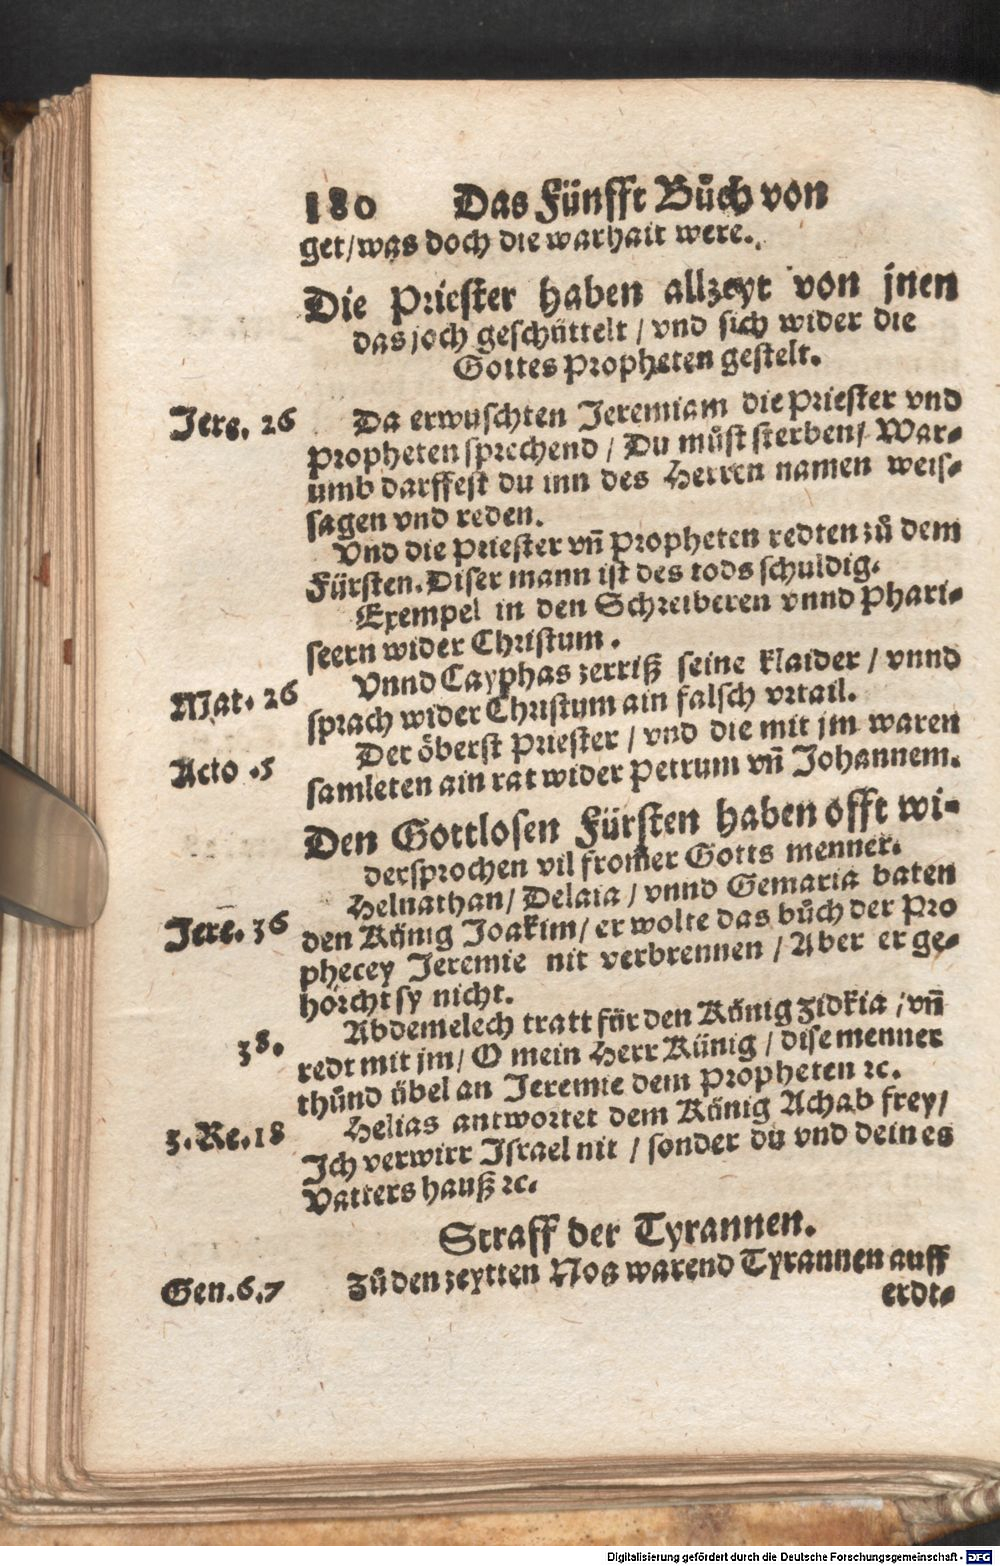 180 Das Fünfft Bůch von
get/was doch die warhait were.
Die Priester haben allzeyt von jnen
das joch geschüttelt / vnd sich wider die
Gottes Propheten gestelt.
Jere. 26 Da erwuschten Jeremiam die Priester vnd
Propheten sprechend / Du můst sterben/ War-
umb darffest du inn des Herren namen weis-
sagen vnd reden.
Vnd die Priester vñ Propheten redten zů dem
Fürsten. Diser mann ist des tods schuldig.
Exempel in den Schreiberen vnnd Phari-
seern wider Christum.
Mat. 26 Vnnd Cayphas zerriß seine klaider / vnnd
sprach wider Christum ain falsch vrtail.
Acto .5 Der öberst Priester / vnd die mit jm waren
samleten ain rat wider Petrum vñ Johannem.
Den Gottlosen Fürsten haben offt wi-
dersprochen vil from̃er Gotts menner.
Helnathan/ Delaia / vnnd Gemaria baten
Jere. 36 den Künig Joakim/ er wolte das bůch der Pro
phecey Jeremie nit verbrennen / Aber er ge-
horcht sy nicht.
38. Abdemelech tratt für den Künig Zidkia / vñ
redt mit jm/ O mein Herr Künig / dise menner
thůnd übel an Jeremie dem Propheten ꝛc.
3. Re. 18 Helias antwortet dem Künig Achab frey/
Ich verwirr Israel nit / sonder du vnd dein es
Vatters hauß ꝛc.
Straff der Tyrannen.
Gen. 6. 7 Zů den zeytten Noa warend Tyrannen auff
erdt-
Digitalisierung gefördert durch die Deutsche Forschungsgemeinschaft - DFG